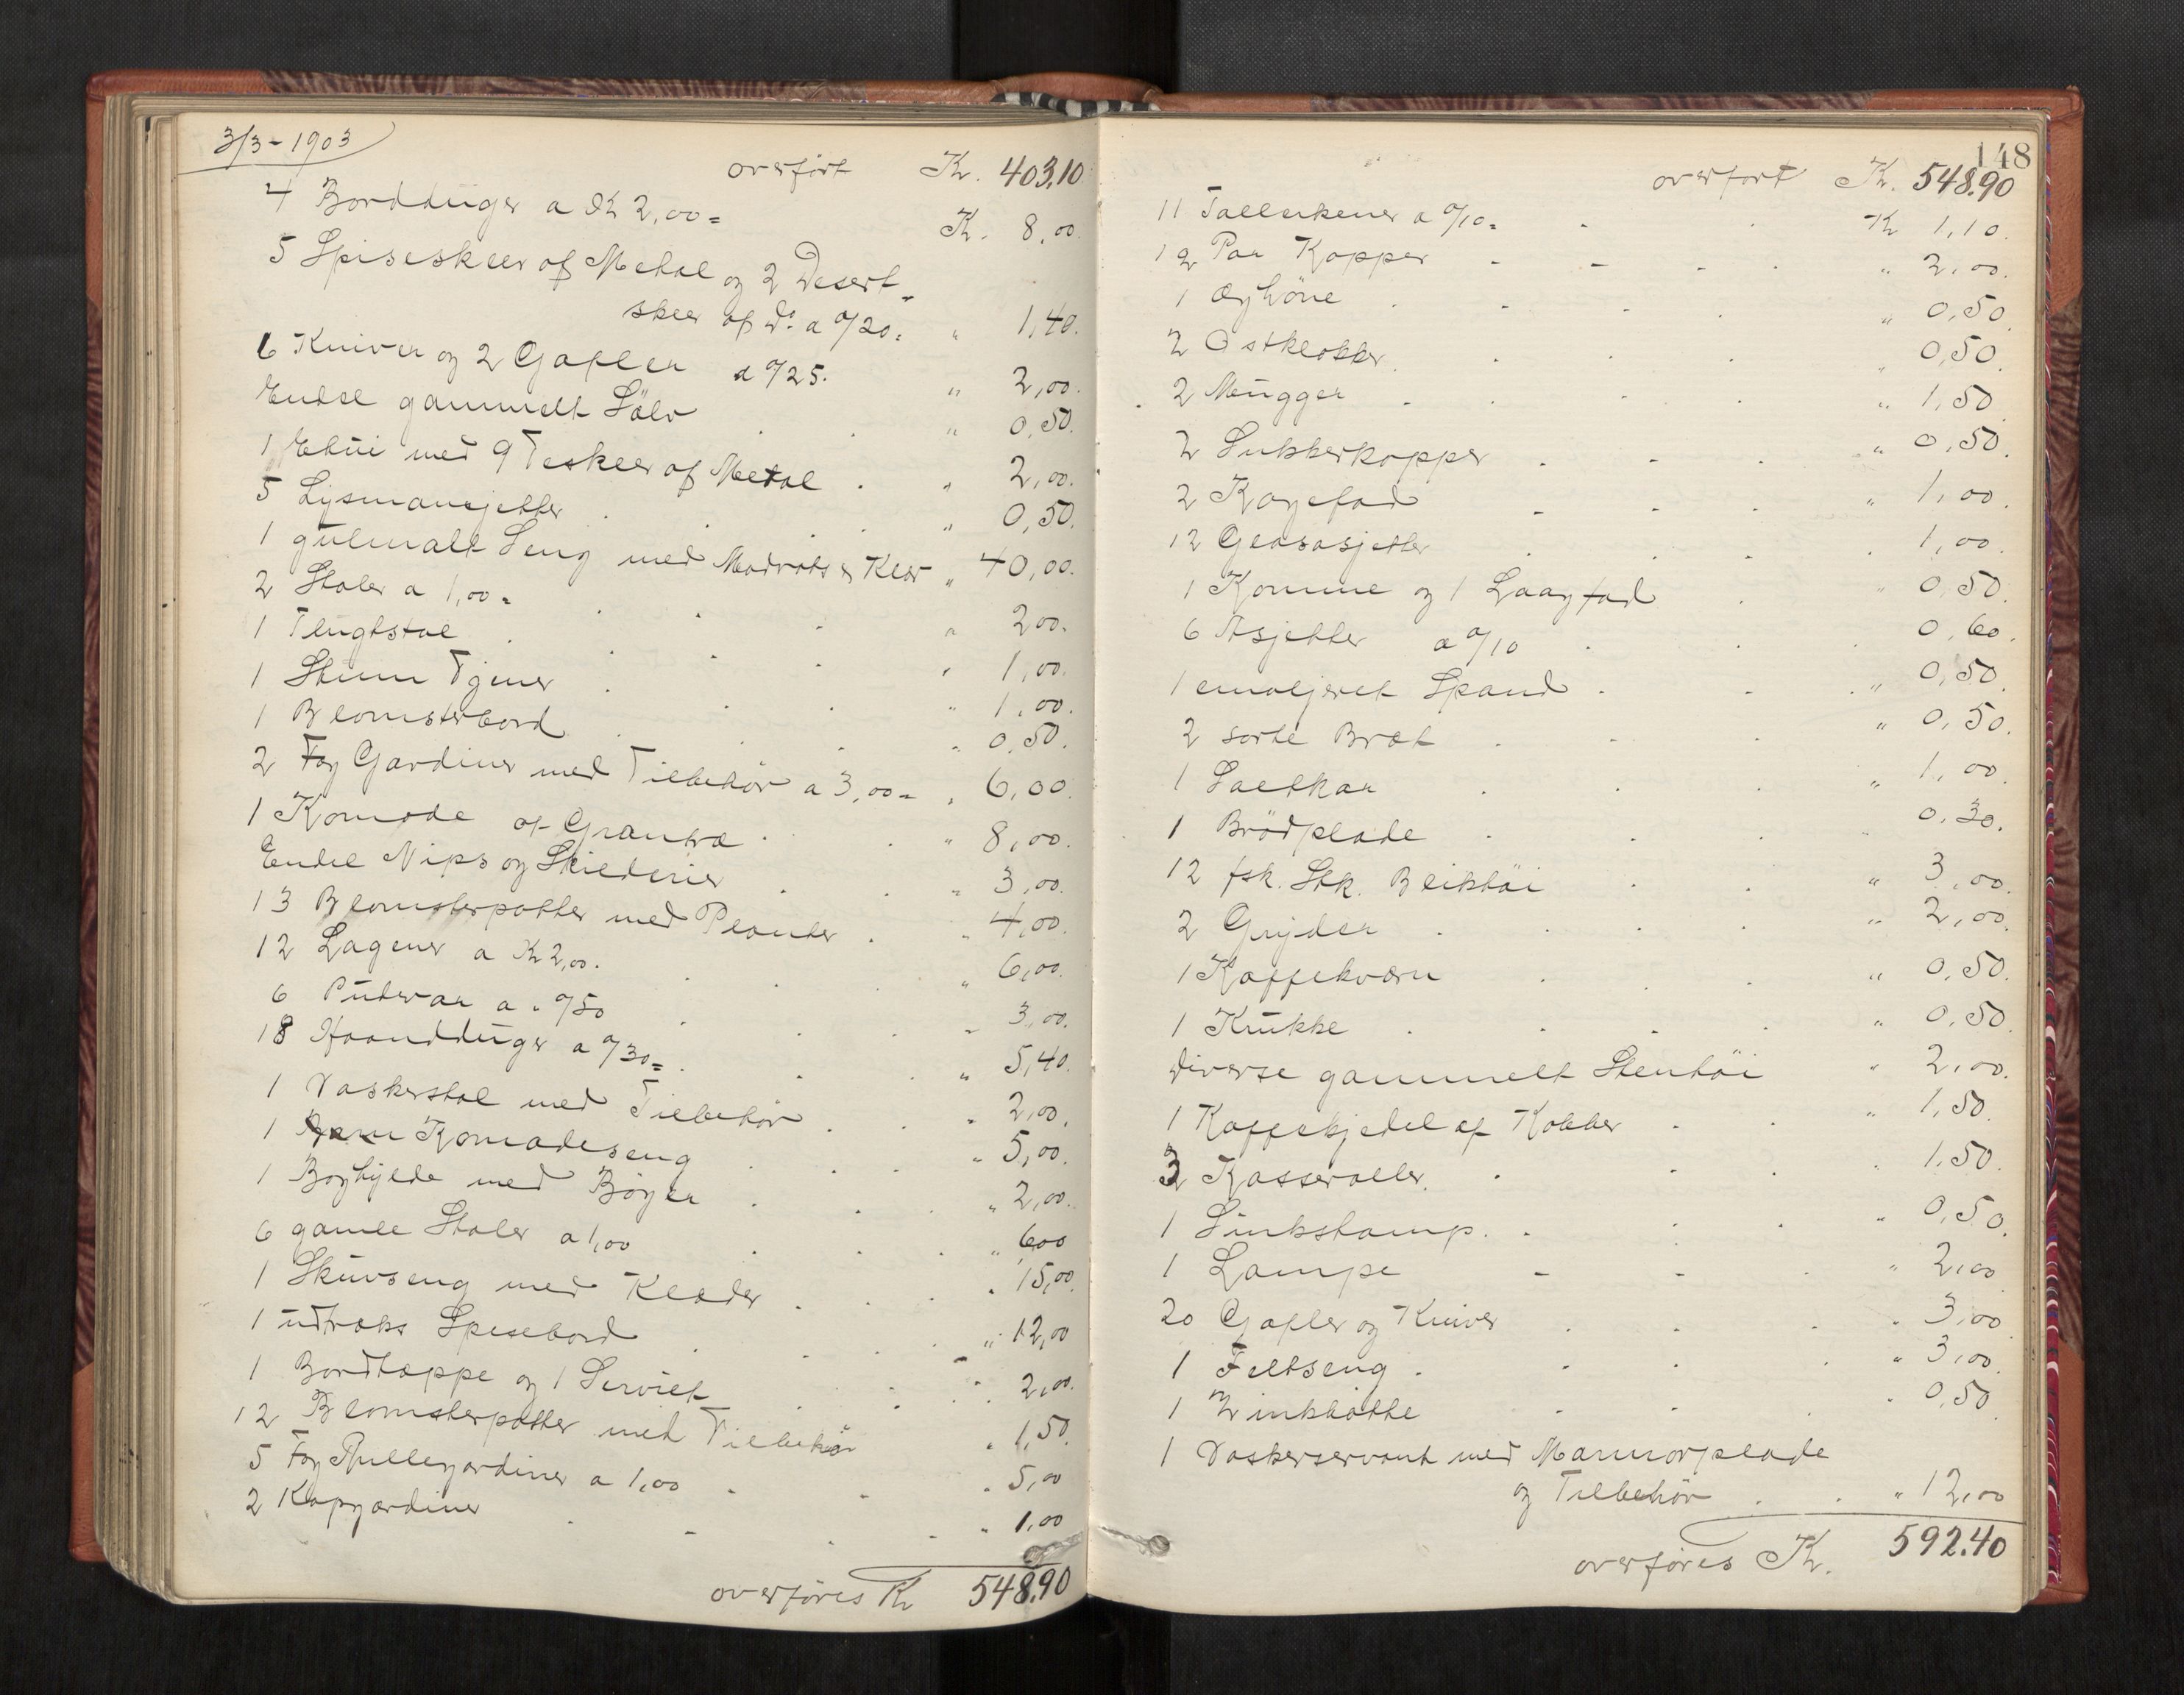 3/3-1903
overført Kr. 403.10.
4 Bordduger a Kr 2,00= Kr. 8,00.
5 Spiseskeer af Metal og 2 Desert-
skeer af Do. a 0/20. " 1,40.
6 Kniver og 2 Gafler a 0/25. " 2,00.
Endel gammelt Sølv . . " 0,50.
1 Etui med 9 Teskeer af Metal . " 2,00.
5 Lysmansjetter . . . " 0,50.
1 gulmalt Seng med Madrats & Klær " 40,00.
2 Stoler a 1,00= . . . " 2 00.
1 Flugtstol . . . . " 1,00.
1 Stum Tjener . . . " 1,00.
1 Blomsterbord . . . " 0,50.
2 Fag Gardiner med Tilbehør a 3,00= " 6,00.
1 Komode af Grantræ . . " 8,00.
Endel Nips og Skilderier . . " 3,00.
13 Blomsterpotter med Planter . " 4,00.
12 Lagener a Kr 2,00. . . " 6,00.
6 Pudevar a " 0/50 . . " 3,00.
18 Haandduger a 0/30= . . " 5,40.
1 Vaskerstol med Tilbehør . . " 2,00.
1 Komodeseng . . . " 5,00.
1 Boghylde med Bøger . . " 2,00.
6 gamle Stoler a 1,00 . . . " 6 00
1 Skuvseng med Klæder . . . " 15,00.
1 udtræks Spisebord . . . " 12,00
1 Bordtæppe og 1 Serviet . . " 2,00.
12 Blomsterpotter med Tilbehør . 1,50.
5 Fag Rullegardiner a 1,00 . . " 5,00
2 Kapgardiner . . . . " 1,00
overføres Kr 548.90
148
overført Kr. 548.90
11 Tallerkener a 0/10= . . Kr 1,10.
12 Par Kopper . . . . " 2,00.
1 Æghøne . . . . " 0,50.
2 Ostklokker . . . . " 0,50.
2 Mugger . . . . " 1,50.
2 Sukkerkopper . . . " 0,50.
2 Kagefad . . . " 1,00.
12 Glasasjetter . . . . 1,00.
1 Komme og 1 Laagfad . " 0,50.
6 Asjetter a 0/10 . . . 0,60.
1 emaljeret Spand . . . " 0,50.
2 sorte Bræt . . . " 0,50.
1 Saltkar . . . " 1,00.
1 Brødplade . . . " 0,30.
12 fsk. Stk. Bliktøi . . " 3,00.
2 Gryder . . . . " 2,00.
1 Kaffekværn . . . " 0,50.
1 Krukke . . . . " 0,50.
diverse gammelt Stentøi " 2,00.
1 Kaffekjedel af Kobber . . " 1,50.
3 Kasseroller . . . . 1,50.
1 Sinkstamp . . . . " 0,50.
1 Lampe . . . " 2,00
20 Gafler og Kniver . . . " 3,00.
1 Feltseng . . . . " 3,00.
1 Zinkbøtte . . . . " 0,50.
1 Vaskerservant med Marmorplade
og Tilbehør . . " 12,00
overføres Kr. 592.40